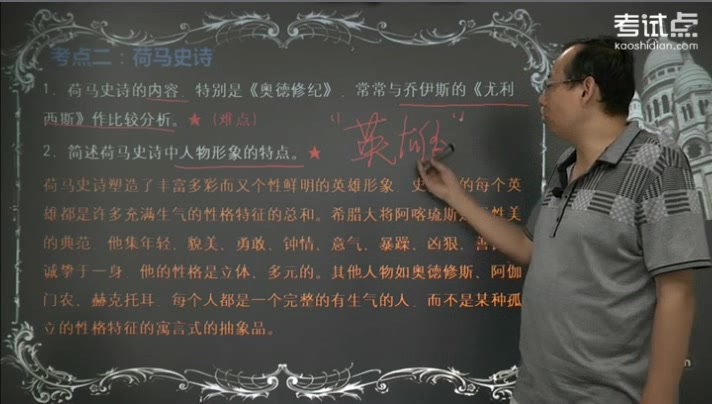 考试点
kaoshidian.com
考点二：荷马史诗
1．荷马史诗的内容．特别是《奥德修纪》．常常与乔伊斯的《尤利
西斯》作比较分析。★（难点）
2．简述荷马史诗中人物形象的特点。★
"英雄"
荷马史诗塑造了丰富多彩而又个性鲜明的英雄形象．史 的每个英
雄都是许多充满生气的性格特征的总和。希腊大将阿喀琉斯 性美
的典范．他集年轻、貌美、勇敢、钟情、意气、暴躁、凶狠、善
诚挚于一身．他的性格是立体、多元的。其他人物如奥德修斯、阿伽
门农、赫克托耳．每个人都是一个完整的有生气的人．而不是某种孤
立的性格特征的寓言式的抽象品。